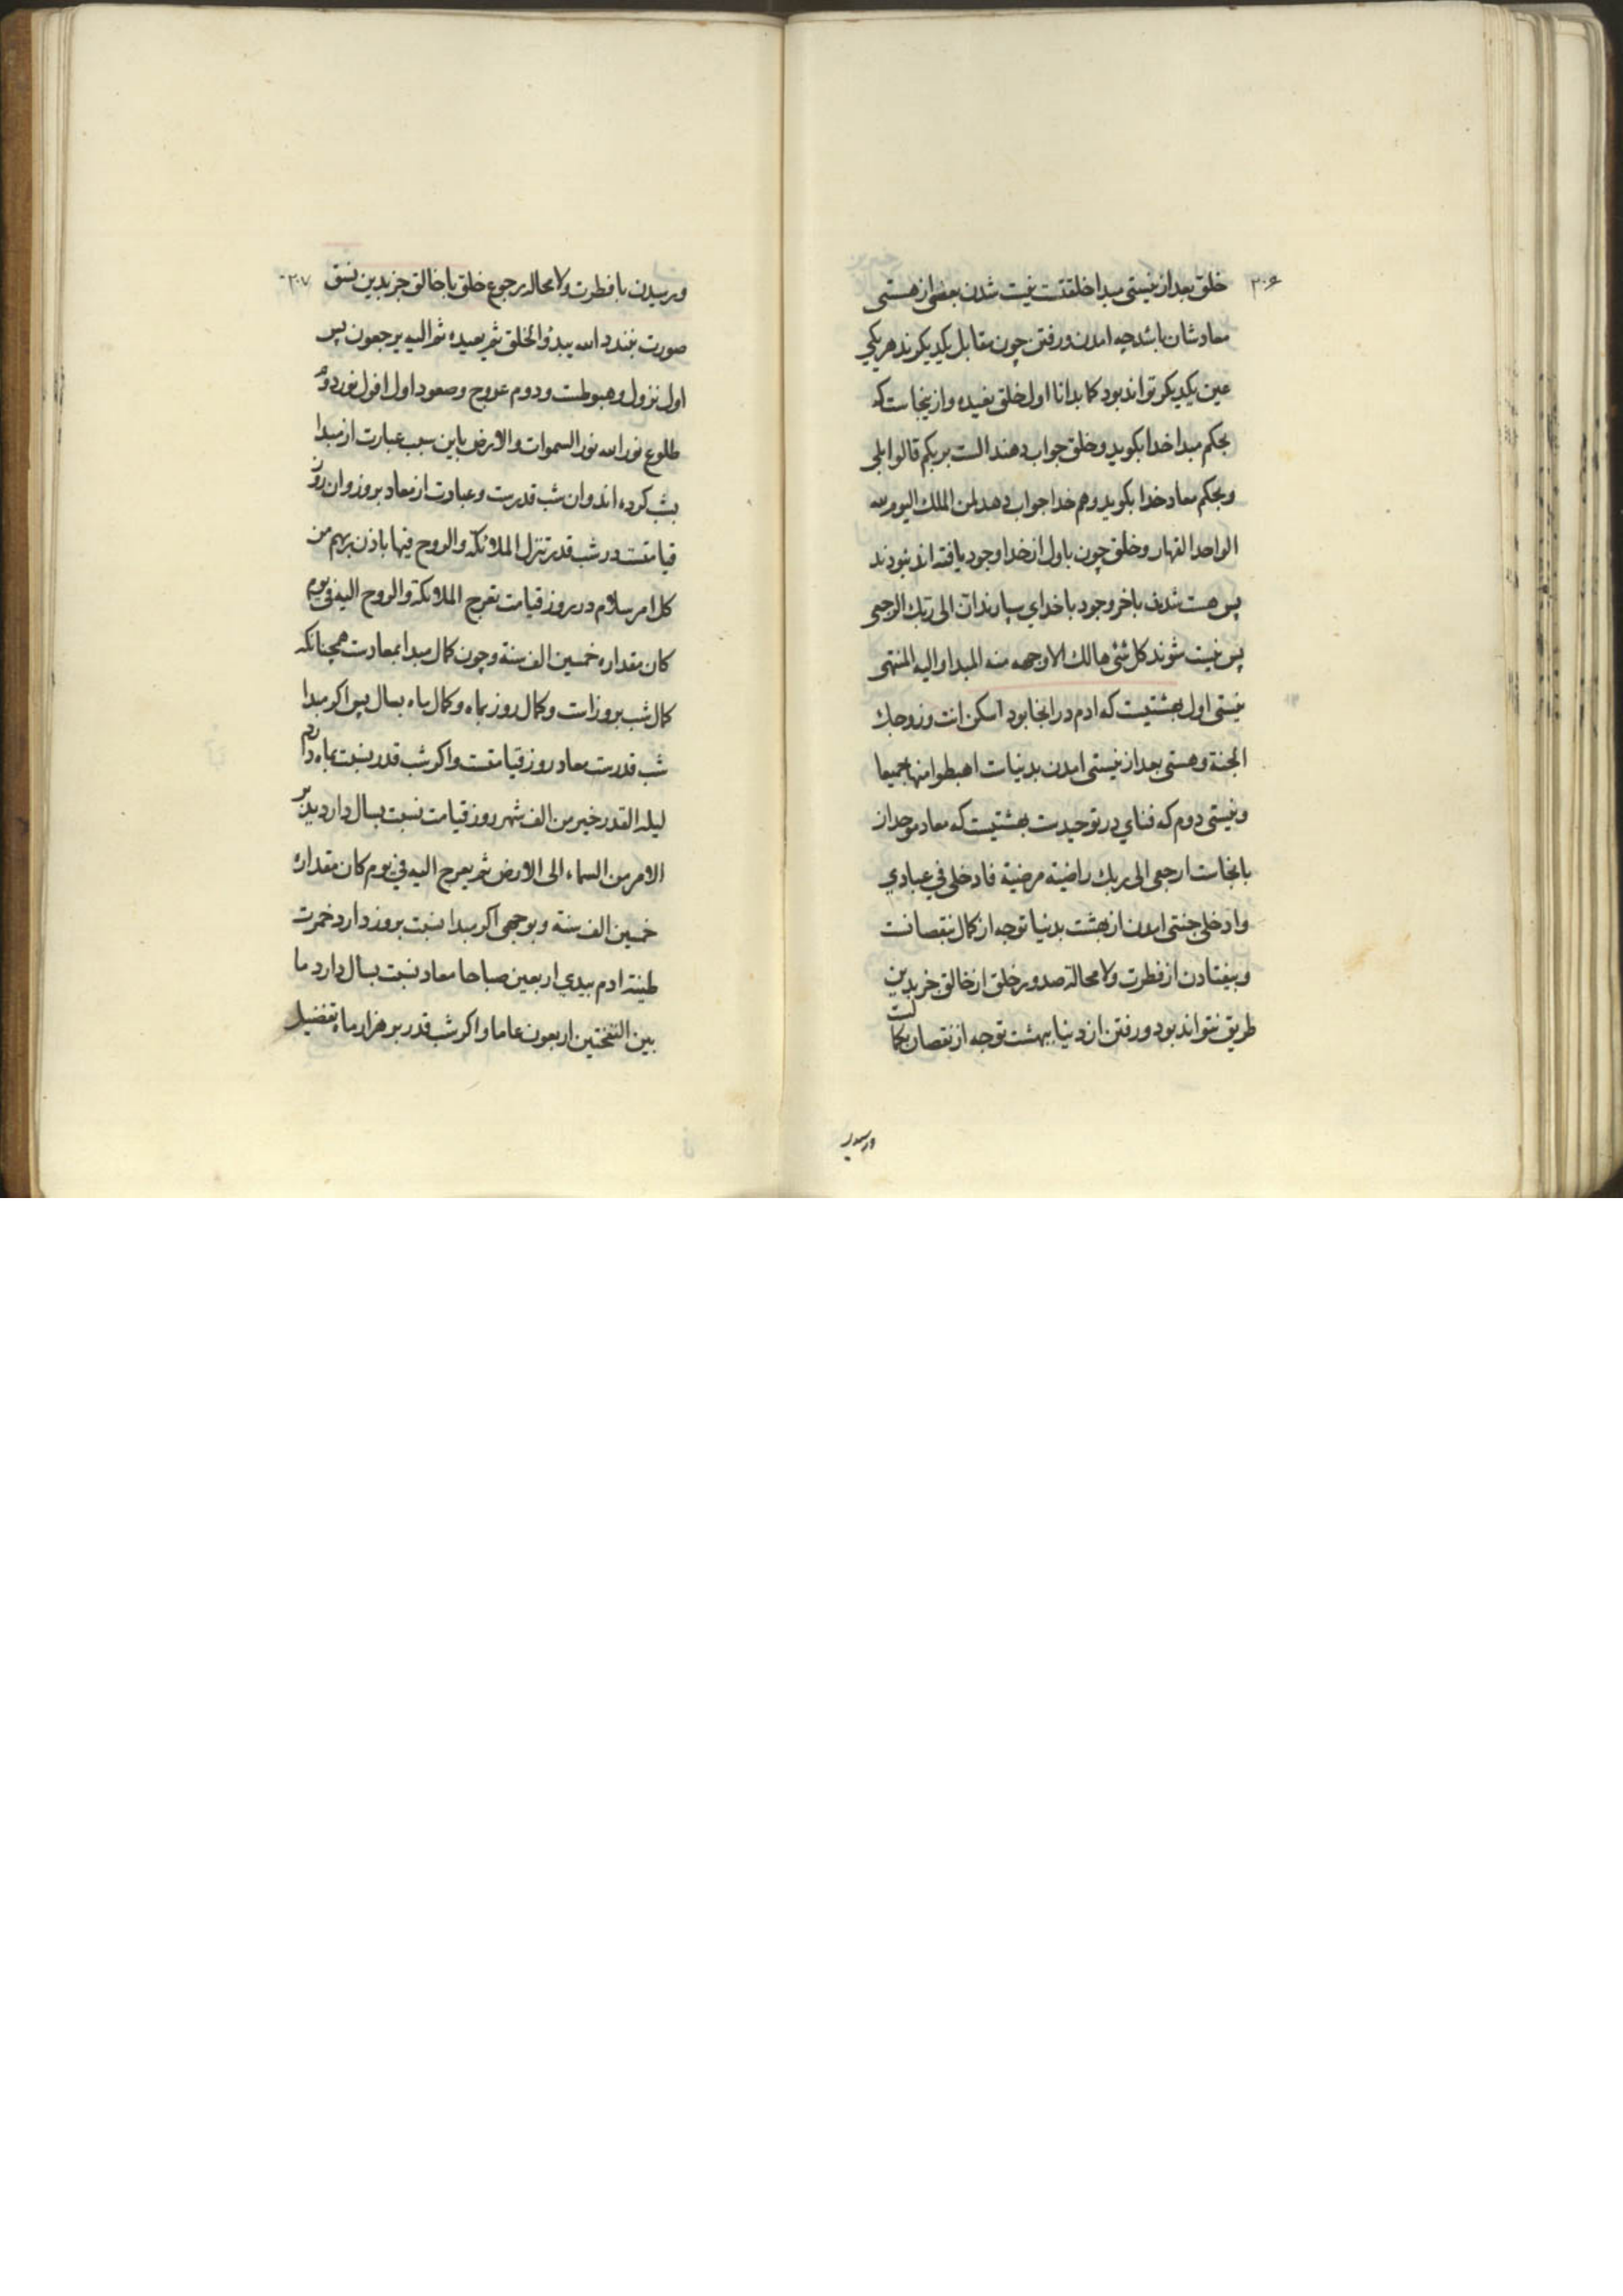 ۳۰۶
خلق بعد از نیستی مبدا خلقتست نیست شدن بعضی از هستی
معادشان باشد چه امدن و رفتن چون مقابل یکدیکرند هر یکی
عین یکدیکر تواند بود کما بدانا اول خلق نعیده و از ینجاست که
بحکم مبدا خدا بکوید و خلق جواب دهند الست بربکم قالوا بلی
و بحکم معاد خدا بکوید و هم خدا جواب دهد لمن الملک الیوم لله
الواحد القهار و خلق چون باول از خدا وجود یافته اند نبودند
پس هست شدند باخر وجود با خدای سپارند ان الی ربک الرجعی
پس نیست شوند کل شئ هالک الا وجهه منه المبدا و الیه المنتهی
نیستی اول بهشتیست که ادم در انجا بود اسکن انت و زوجک
الجنة و هستی بعد از نیستی امدن بدنیاست اهبطوا منها جمیعا
و نیستی دوم که فنای در توحیدست بهشتیست که معاد موحد از
بانجاست ارجعی الی ربک راضیة مرضیة فادخلی فی عبادی
وادخلی جنتی امدن از بهشت بدنیا توجه از کمال بنقصانست
و بیفتادن از فطرت ولا محالة صدور خلق از خالق جز بدین
طریق نتواند بود و رفتن از دنیا ببهشت توجه از نقصان بکمالست
و رسیدن
۳۰۷
و رسیدن بافطرت ولا محاله رجوع خلق با خالق جز بدین نسق
صورت نبندد الله یبدؤ الخلق ثم یعیده ثم الیه یرجعون پس
اول نزول و هبوطست و دوم عروج و صعود اول افول نور دوم
طلوع نور الله نور السموات والارض باین سبب عبارت از مبدا
بشب کرده اند و ان شب قدرست و عبادت از معاد بروز و ان روز
قیامتست در شب قدر تنزل الملائکة والروح فیها باذن ربهم من
کل امر سلام در روز قیامت تعرج الملائکة والروح الیه فی یوم
کان مقداره خمسین الف سنة و چون کمال مبدا بمعادست همچنانکه
کمال شب بروز است و کمال روز بماه و کمال ماه بسال پس اکر مبدا
شب قدرست معاد روز قیامتست و اکر شب قدر بنسبت بماه دارد
لیلة القدر خیر من الف شهر روز قیامت نسبت بسال دارد یدبر
الامر من السماء الی الارض ثم یعرج الیه فی یوم کان مقداره
خمسین الف سنة و بوجهی اکر مبدا نسبت بروز دارد خمرت
طینة ادم بیدی اربعین صباحا معاد نسبت بسال دارد ما
بین النفختین اربعون عاما و اکر شب قدر بر هزار ماه تفضیل